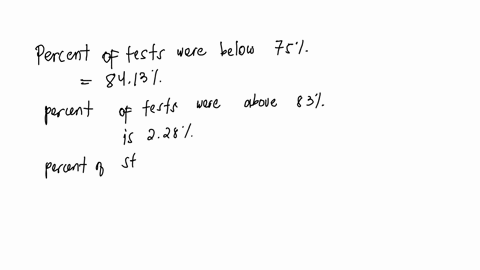 Percent of tests were below 75%.
= 84.13%.
percent of tests were above 83%.
is 2.28%.
percent of st